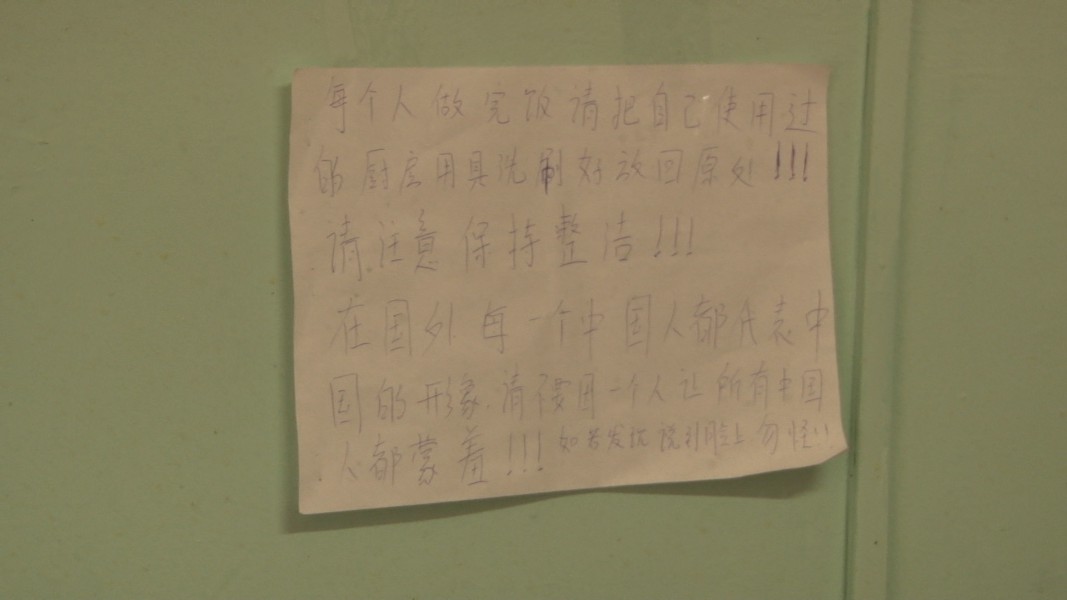 每个人做完饭请把自己使用过
的厨房用具洗刷好放回原处!!!
请注意保持整洁!!!
在国外每一个中国人都代表中
国的形象.请不要因一个人让所有中国
人都蒙羞!!! 如若发现说到脸上勿怪!!